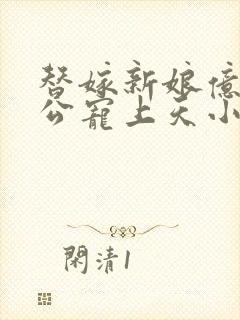 替嫁新娘億
公寵上天小
閑清1